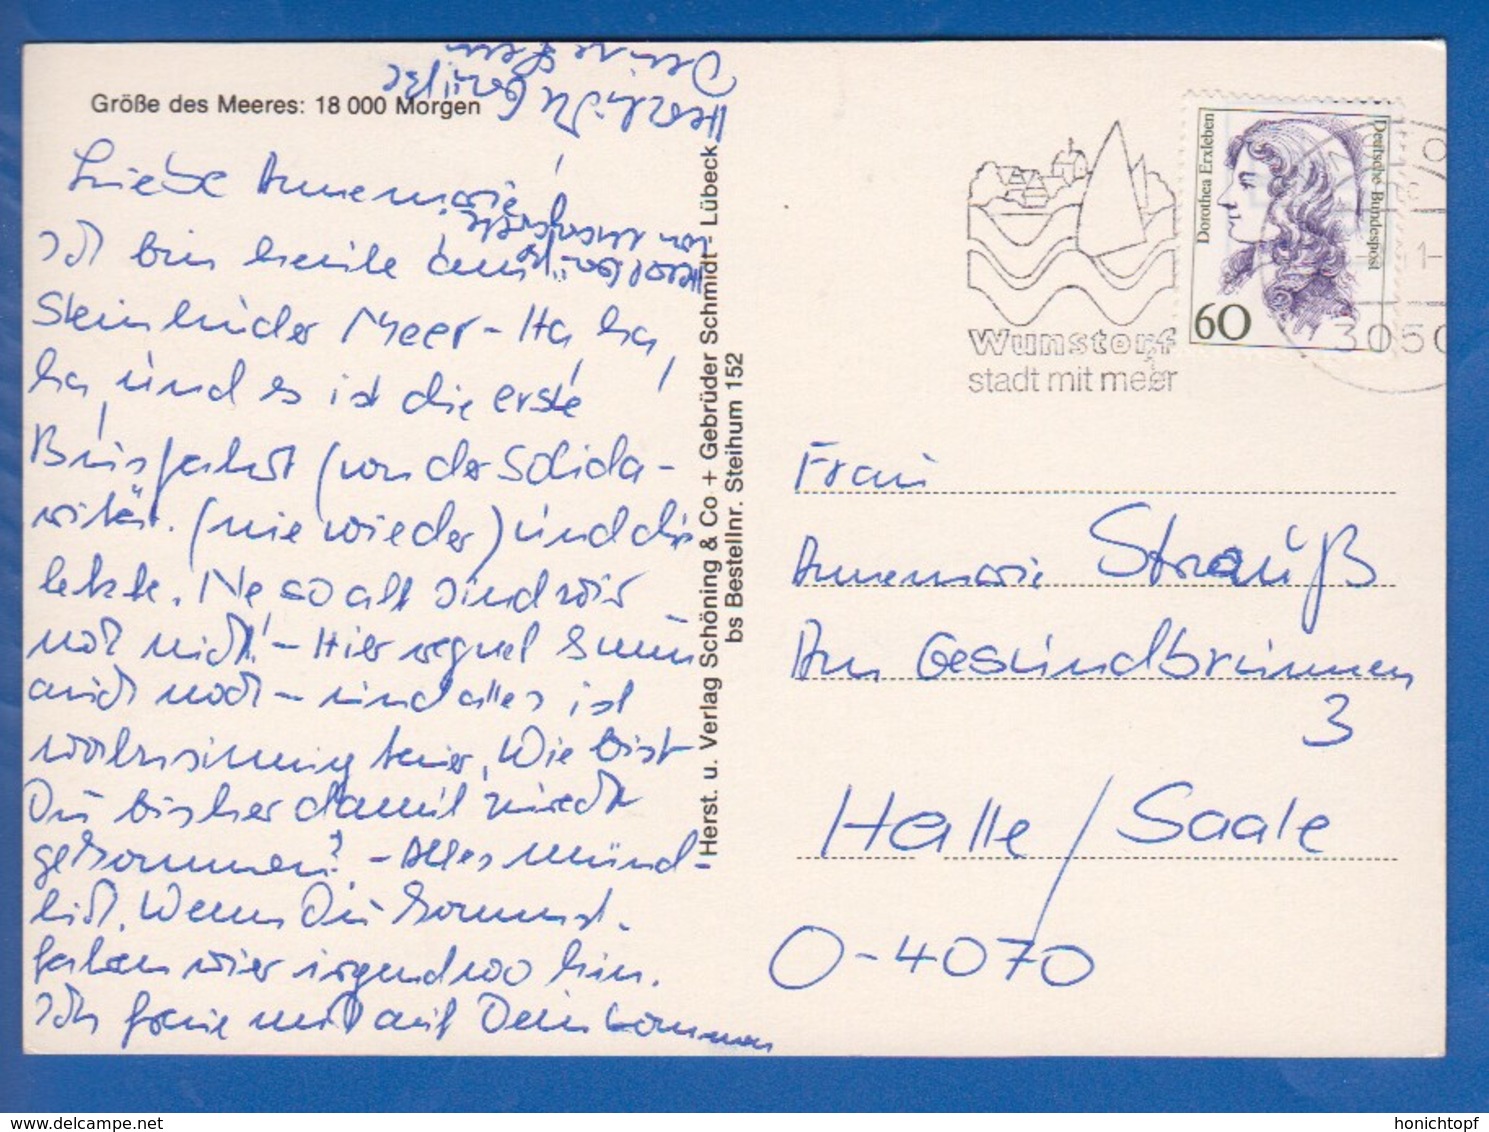 Größe des Meeres: 18 000 Morgen
Herzliche Grüße
Deine
Liebe Annemarie!
Ich bin heute am
Steinhuder Meer - Ha, ha,
ha, und es ist die erste
Busfahrt (von der Solida-
rität. (nie wieder) und die
letzte. Ne so alt sind wir
noch nicht! - Hier regnet
auch noch - und alles ist
wahnsinnig teuer. Wie bist
Du bisher damit zurecht
gekommen? - Alles münd-
lich. Wenn Du kommst.
fahren wir irgendwo hin.
Ich freue mich auf Dein kommen
Herst. u. Verlag Schöning & Co + Gebrüder Schmidt - Lübeck
bs Bestellnr. Steihum 152
Wunstorf
stadt mit meer
Dorothea Erxleben
Deutsche Bundespost
60
3050
Frau
Annemarie Strauß
Am Gesundbrunnen
3
Halle / Saale
O-4070
delcampe.net
honichtopf